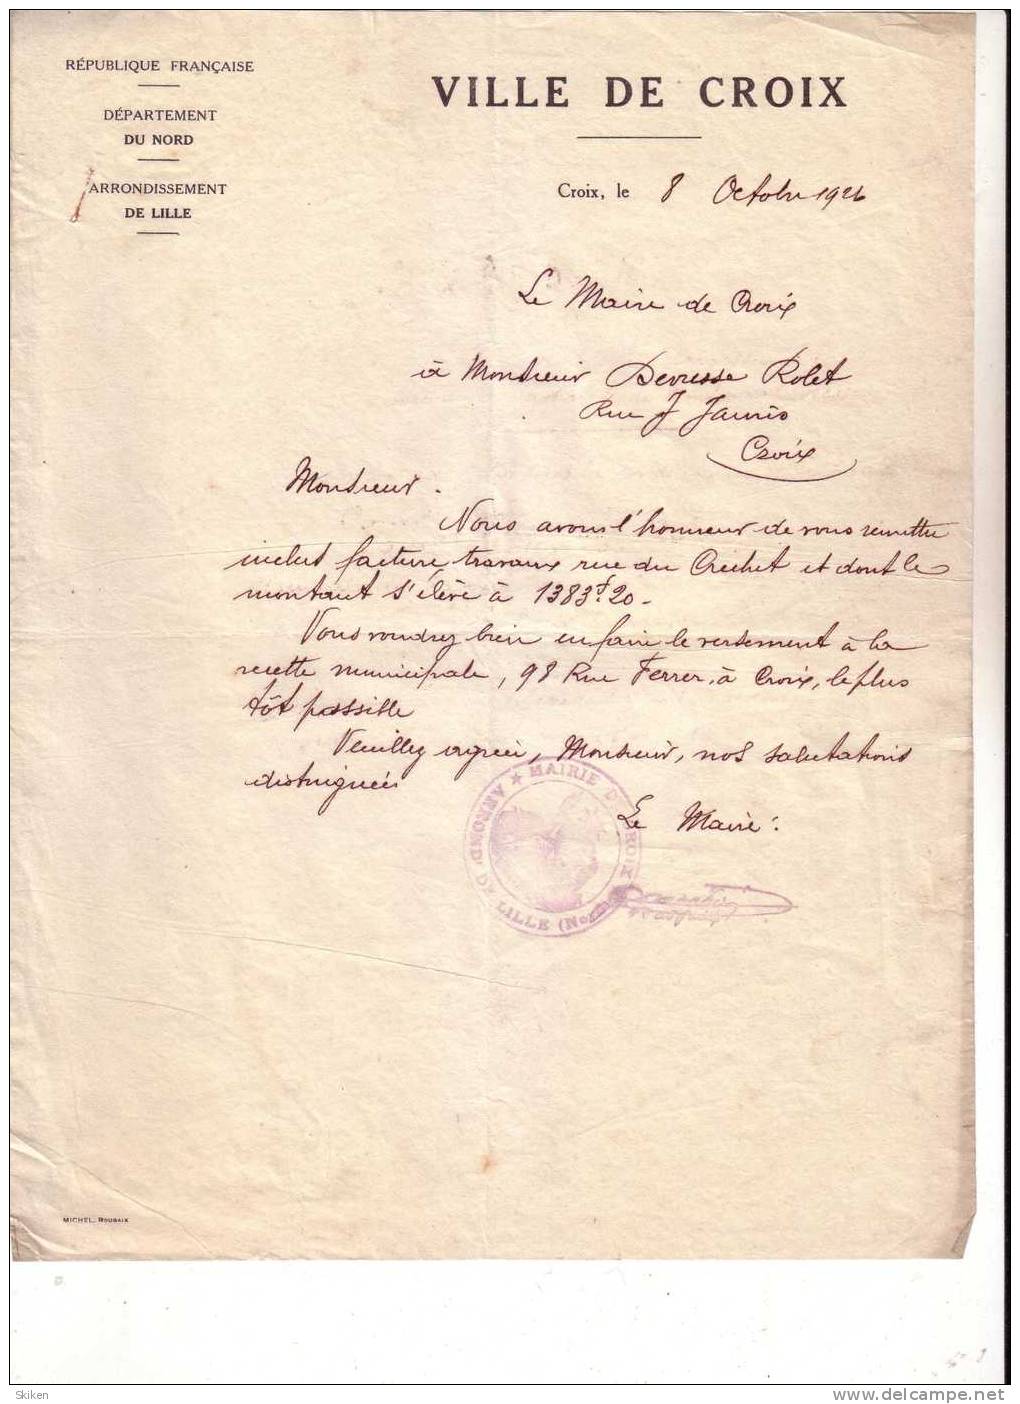 RÉPUBLIQUE FRANÇAISE
DÉPARTEMENT
DU NORD
ARRONDISSEMENT
DE LILLE
VILLE DE CROIX
Croix, le 8 Octobre 1926
Le Maire de Croix
à Monsieur Devresse Rolet
Rue J Jaurès
Croix
Monsieur.
Nous avons l'honneur de vous remettre
inclut facture, travaux rue du Crechet et dont le
montant s'élève à 1383f.20.
Vous voudrez bien en faire le versement à la
recette municipale, 98 Rue Ferrer, à Croix, le plus
tôt possible
Veuillez agréer, Monsieur, nos salutations
distinguées
Le Maire:
★ MAIRIE DE CROIX
ARROND. DE LILLE (Nord)
MICHEL, ROUBAIX
Skiken
www.delcampe.net